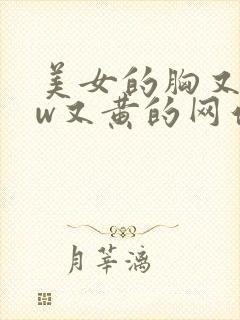 美女的胸又
w又黄的网
月莘漓